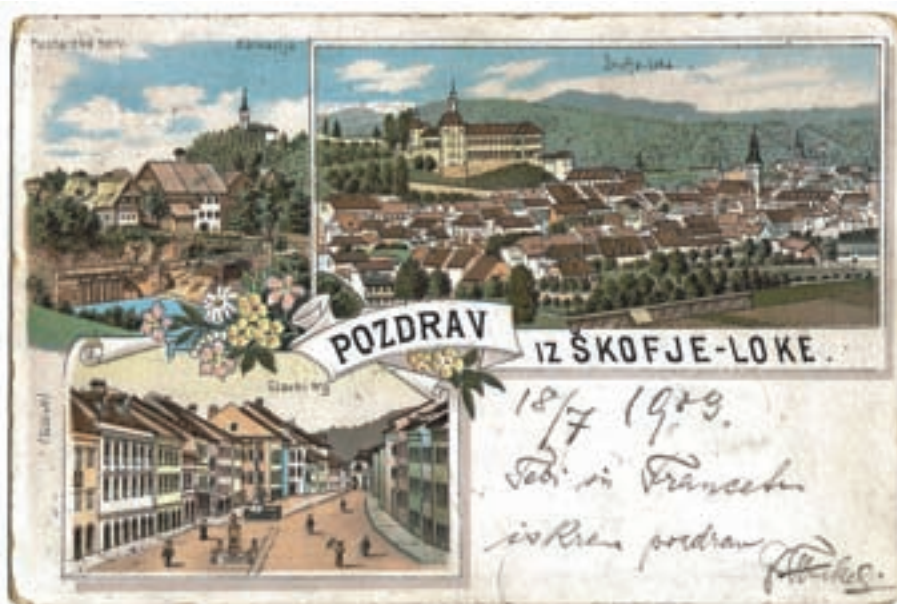 Škofja-Loka
POZDRAV
IZ ŠKOFJE-LOKE.
Glavni trg
18/7 1909.
Tebi in Francetu
iskren pozdrav